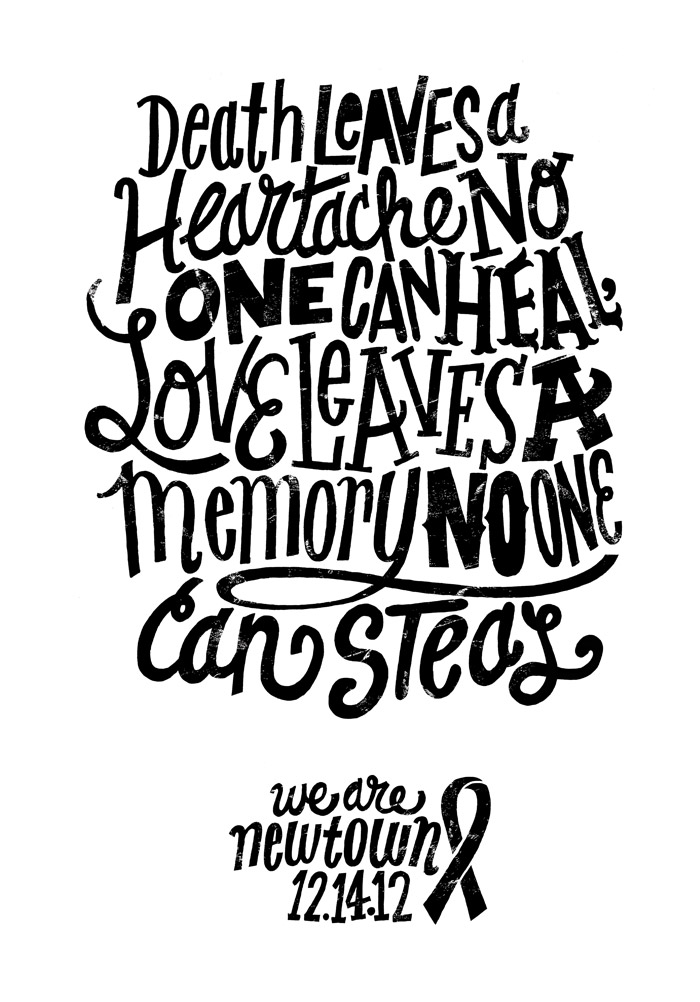 Death LeAVEs a
Heartache NO
ONE CAN HEAL,
LoVE LeAVES A
memory NO ONE
Can STeaL
we are
newtown
12.14.12